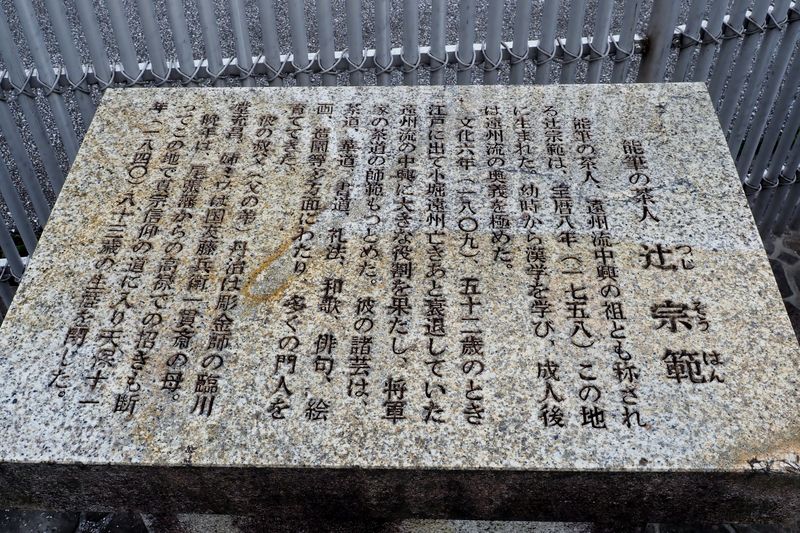 能筆の茶人 辻宗範
つじ そうはん
能筆の茶人、遠州流中興の祖とも称され
る辻宗範は、宝暦八年(一七五八)この地
に生まれた。幼時から漢学を学び、成人後
は遠州流の奥義を極めた。
文化六年(一八〇九)五十二歳のとき
江戸に出て小堀遠州亡きあと衰退していた
遠州流の中興に大きな役割を果たし、将軍
家の茶道の師範もつとめた。彼の諸芸は、
茶道、華道、書道、礼法、和歌、俳句、絵
画、造園等多方面にわたり、多くの門人を
育ててきた。
彼の叔父(父の弟)丹治は彫金師の臨川
堂充昌、姉ミワは国友藤兵衛一貫斎の母。
晩年は、尾張藩からの高禄での招きも断
ってこの地で真宗信仰の道に入り天保十一
年(一八四〇)八十三歳の生涯を閉じた。